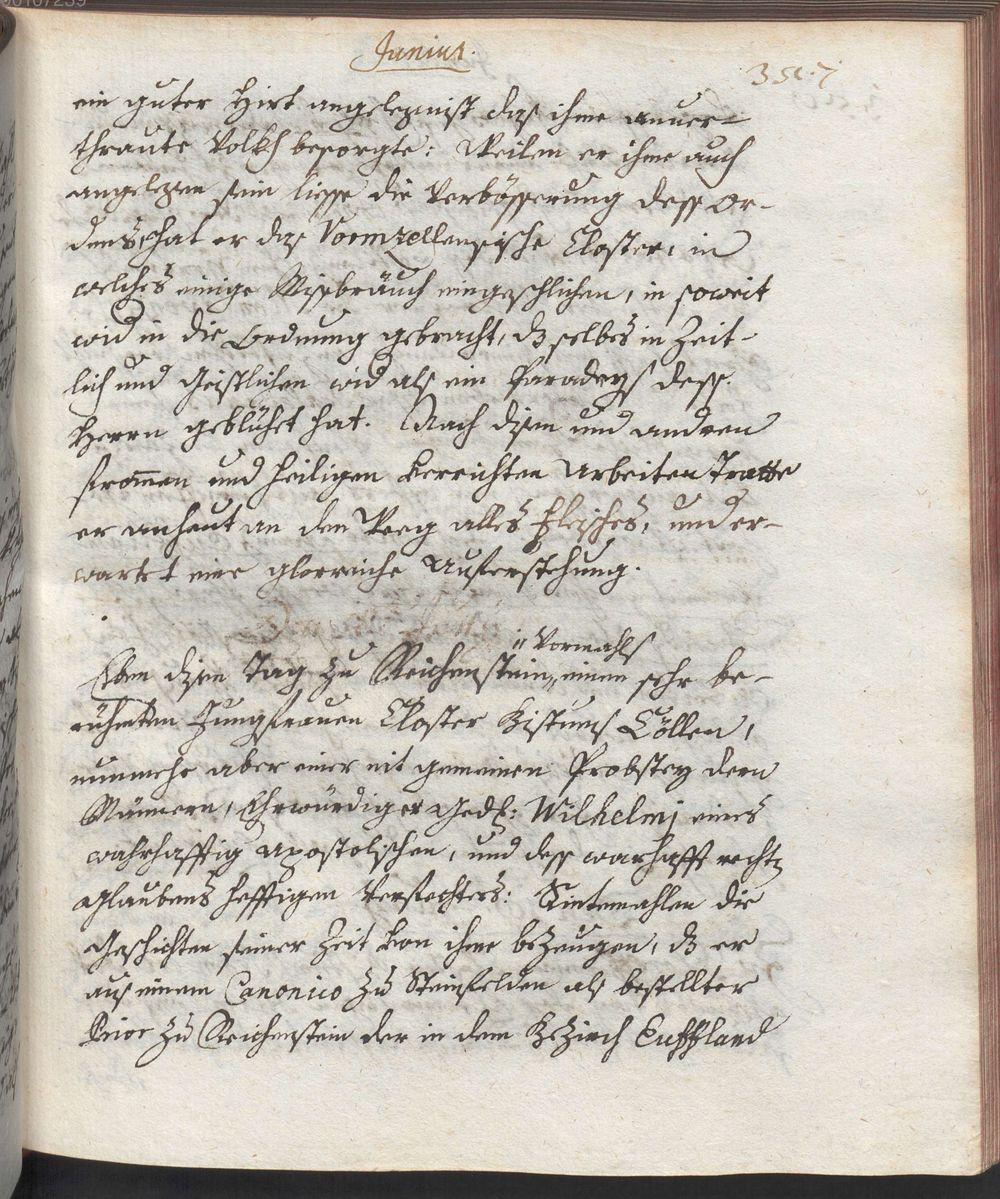 Junius.
ein guter Hirt angelegnist das ihme anver-
thraute Volkh besorgte: Weilen er ihme auch
angelegen sein liesse die Verbösserung dess Or-
dens, hat er das Closter, in
welches einige Missbräuch eingeschlichen, in soweit
wid in die Ordnung gebracht, dz selbes in Zeit-
lich und Geistlichen wid als ein Paradeys dess
Herrn geblühet hat. Nach disen und andren
from̄en und heiligen verrichten Arbeiten Tratte
er anheut an den Weeg alles Fleisches, und er-
wartet eine glorreiche Auferstehung.
"Vormahls
Eben disen Tag zu Reichenstein,, einem sehr be-
rühmten Jungfrauen Closter Bistums Cöllen,
nunmehr aber einer nit gemeinen Probstey deren
Männern, Ehrwürdiger Ged: Wilhelmj eines
wahrhafftig Apostolischen, und dess warhafft rechten
Glaubens hefftigen Verfechters: Sintemahlen die
Geschichten seiner Zeit von ihme bezeugen, dz er
aus einem Canonico zu Steinfelden als bestellter
Prior zu Reichenstein der in dem Bezirch Euffland